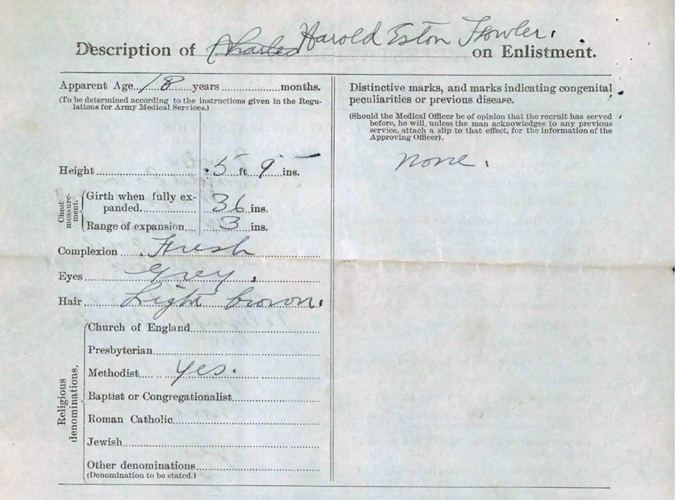 Description of Charles Harold Eston Fowler. on Enlistment.
Apparent Age 18 years months.
(To be determined according to the instructions given in the Regu-
lations for Army Medical Services.)
Height 5 ft. 9 ins.
Chest measure-ment.
Girth when fully ex-
panded 36 ins.
Range of expansion 3 ins.
Complexion Fresh
Eyes Grey.
Hair Light brown.
Religious denominations.
Church of England
Presbyterian
Methodist Yes.
Baptist or Congregationalist
Roman Catholic
Jewish
Other denominations
(Denomination to be stated.)
Distinctive marks, and marks indicating congenital
peculiarities or previous disease.
(Should the Medical Officer be of opinion that the recruit has served
before, he will, unless the man acknowledges to any previous
service, attach a slip to that effect, for the information of the
Approving Officer).
none.